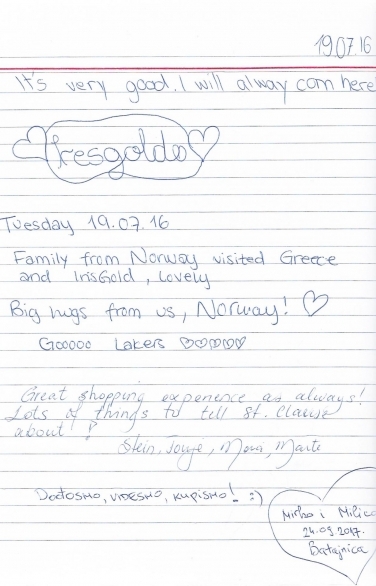 19.07.16
It's very good. I will alway com here
Iresgoldo
Tuesday 19.07.16
Family from Norway visited Greece
and IrisGold, Lovely
Big hugs from us, Norway!
Gooooo Lakers
Great shopping experience as always!
Lots of things to tell St. Clause
about!
Stein, Tonje, Mona, Marte
Dođosmo, videsmo, kupismo! :)
Mirko i Milica
24.09.2017.
Batajnica